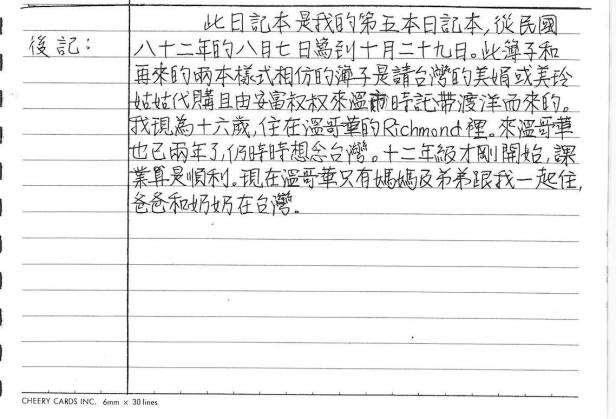 此日記本是我的第五本日記本,從民國
後記: 八十二年的八月七日寫到十月二十九日。此簿子和
再來的兩本樣式相仿的簿子是請台灣的美娟或美玲
姑姑代購且由安富叔叔來溫市時託帶渡洋而來的。
我現為十六歲,住在溫哥華的Richmond裡。來溫哥華
也已兩年了,仍時時想念台灣。十二年級才剛開始,課
業算是順利。現在溫哥華只有媽媽及弟弟跟我一起住,
爸爸和奶奶在台灣。
CHEERY CARDS INC. 6mm × 30 lines